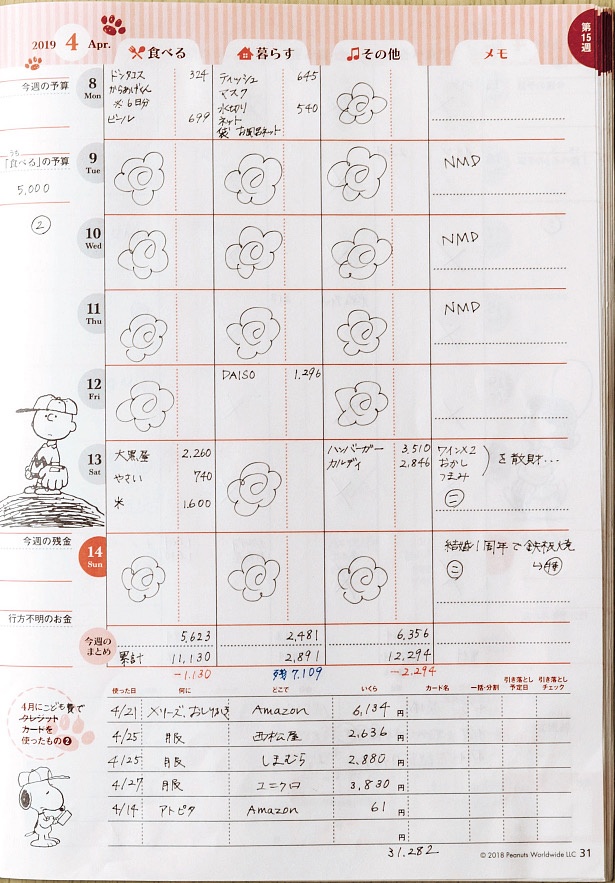 2019 4 Apr.
食べる 暮らす その他 メモ
第15週
今週の予算
8 Mon
ドンタコス 324
からあげくん
※6日分
ビール 699
ティッシュ 645
マスク
水切り 540
ネット
袋 お風呂ネット
うち
「食べる」の予算
5,000
②
9 Tue
NMD
10 Wed
NMD
11 Thu
NMD
12 Fri
DAISO 1,296
13 Sat
大黒屋 2,260
やさい 740
米 1,600
ハンバーガー 3,510
カルディ 2,846
ワイン×2
おかし
つまみ
を散財...
㊁
今週の残金
14 Sun
結婚1周年で鉄板焼
㊁
行方不明のお金
今週のまとめ
5,623 2,481 6,356
累計 11,130 2,891 12,294
-1,130 残7,109 -2,294
使った日 何に どこで いくら カード名 一括・分割 引き落とし予定日 引き落としチェック
4月にこども費で
クレジット
カードを
使ったもの❷
4/21 メリーズ、おしりふき Amazon 6,134 円
4/25 月服 西松屋 2,636 円
4/25 月服 しまむら 2,880 円
4/27 月服 ユニクロ 3,830 円
4/14 アトピタ Amazon 61 円
円
31,282
© 2018 Peanuts Worldwide LLC 31